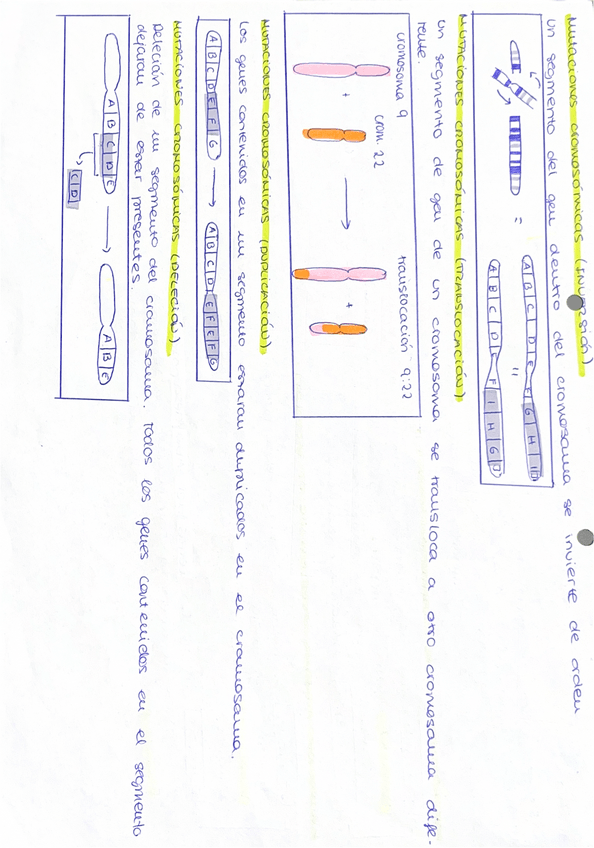 MUTACIONES CROMOSÓMICAS (INVERSIÓN)
Un segmento del gen dentro del cromosoma se invierte de orden
=
A B C D E F G H I J
"
A B C D E F I H G J
MUTACIONES CROMOSÓMICAS (TRANSLOCACIÓN)
Un segmento de gen de un cromosoma se transloca a otro cromosoma dife-
rente.
cromosoma 9
+
crom. 22
translocación 9:22
+
MUTACIONES CROMOSÓMICAS (DUPLICACIÓN)
Los genes contenidos en un segmento estaran duplicados en el cromosoma.
A B C D E F G
A B C D E F E F G
MUTACIONES CROMOSÓMICAS (DELECIÓN)
Deleción de un segmento del cromosoma. Todos los genes contenidos en el segmento
dejaran de estar presentes.
A B C D E
C D
A B E